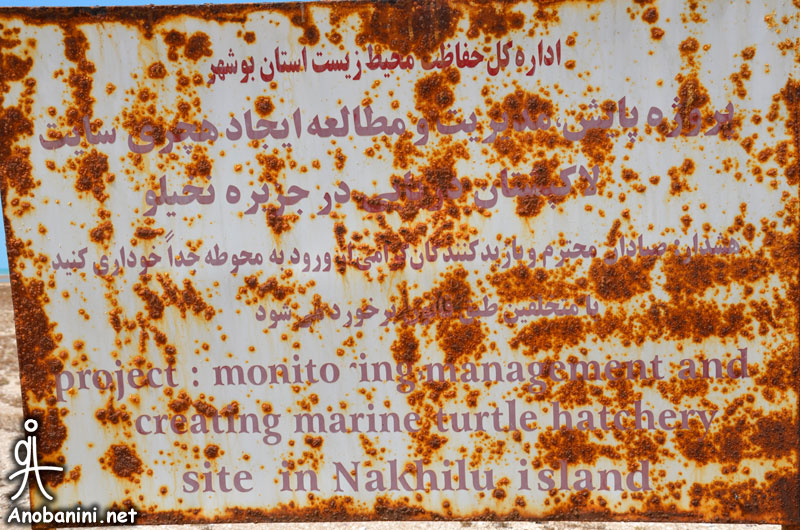 اداره کل حفاظت محیط زیست استان بوشهر
پروژه پایش مدیریت و مطالعه ایجاد هچری سایت
لاکپشتان دریایی در جزیره نخیلو
هشدار: صیادان محترم و بازدیدکنندگان گرامی از ورود به محوطه جداً خوداری کنید
با متخلفین طبق قانون برخورد می شود
project : monitoring management and
creating marine turtle hatchery
site in Nakhilu island
Anobanini.net